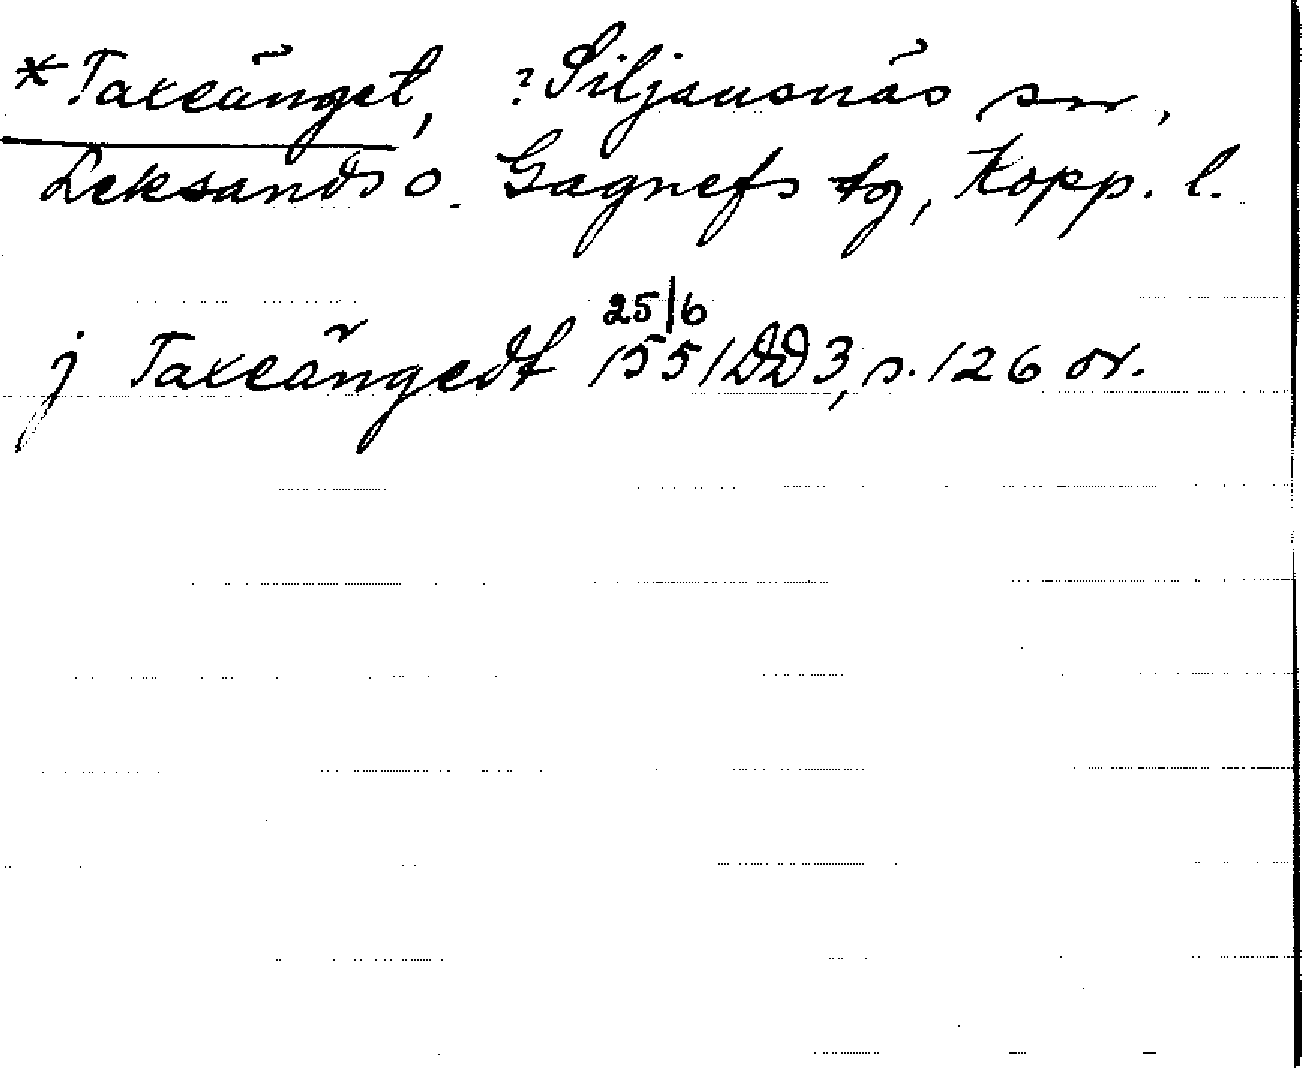 *Taxeänget, ?Siljansnäs sn,
Leksands o. Gagnefs tg, Kopp. l.
25/6
j Taxeängedt 1551 DD 3, s. 126 or.